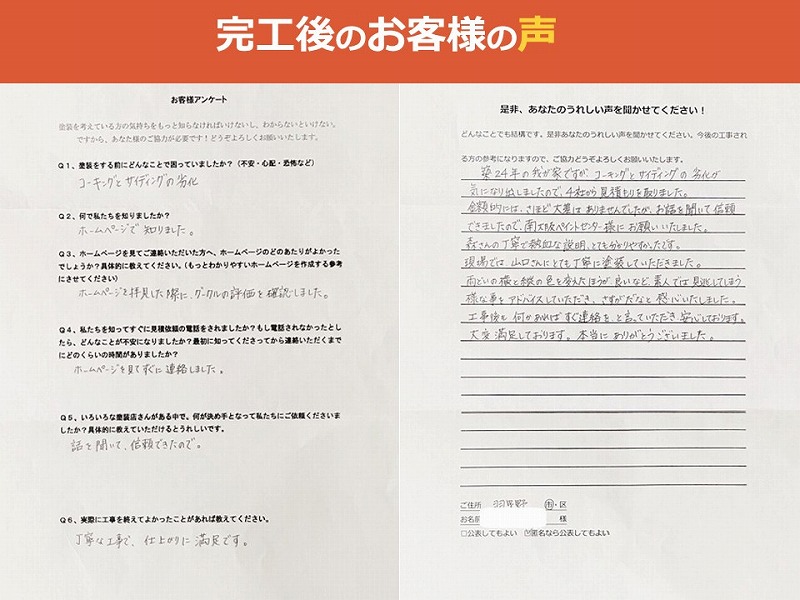 完工後のお客様の声
お客様アンケート
塗装を考えている方の気持ちをもっと知らなければいけないし、わからないといけない。
ですから、あなた様のご協力が必要です！どうぞよろしくお願いいたします。
Q1、塗装をする前にどんなことで困っていましたか？（不安・心配・恐怖など）
コーキングとサイディングの劣化
Q2、何で私たちを知りましたか？
ホームページで知りました。
Q3、ホームページを見てご連絡いただいた方へ、ホームページのどのあたりがよかった
でしょうか？具体的に教えてください。（もっとわかりやすいホームページを作成する参考
にさせてください）
ホームページを拝見した際に、グーグルの評価を確認しました。
Q4、私たちを知ってすぐに見積依頼の電話をされましたか？もし電話されなかったとし
たら、どんなことが不安になりましたか？最初に知ってくださってから連絡いただくまで
にどのくらいの時間がありましたか？
ホームページを見てすぐに連絡しました。
Q5、いろいろな塗装店さんがある中で、何が決め手となって私たちにご依頼くださいま
したか？具体的に教えていただけるとうれしいです。
話を聞いて、信頼できたので。
Q6、実際に工事を終えてよかったことがあれば教えてください。
丁寧な工事で、仕上がりに満足です。
是非、あなたのうれしい声を聞かせてください！
どんなことでも結構です。是非あなたのうれしい声を聞かせてください。今後の工事され
る方の参考になりますので、ご協力どうぞよろしくお願いいたします。
築24年の我が家ですが、コーキングとサイディングの劣化が
気になり出しましたので、4社から見積もりを取りました。
金額的には、さほど大差はありませんでしたが、お話を聞いて信頼
できましたので、南大阪ペイントセンター様にお願いいたしました。
森さんの丁寧で熱心な説明、とても分かりやすかったです。
現場では、山口さんにとても丁寧に塗装していただきました。
雨どいの横と縦の色を変えたほうが良いなど、素人では見逃してしまう
様な事をアドバイスしていただき、さすがだなと感心いたしました。
工事後も何かあればすぐ連絡を、と言っていただき安心しております。
大変満足しております。本当にありがとうございました。
ご住所 羽曳野 市・区
お名前 様
□公表してもよい ☑匿名なら公表してもよい